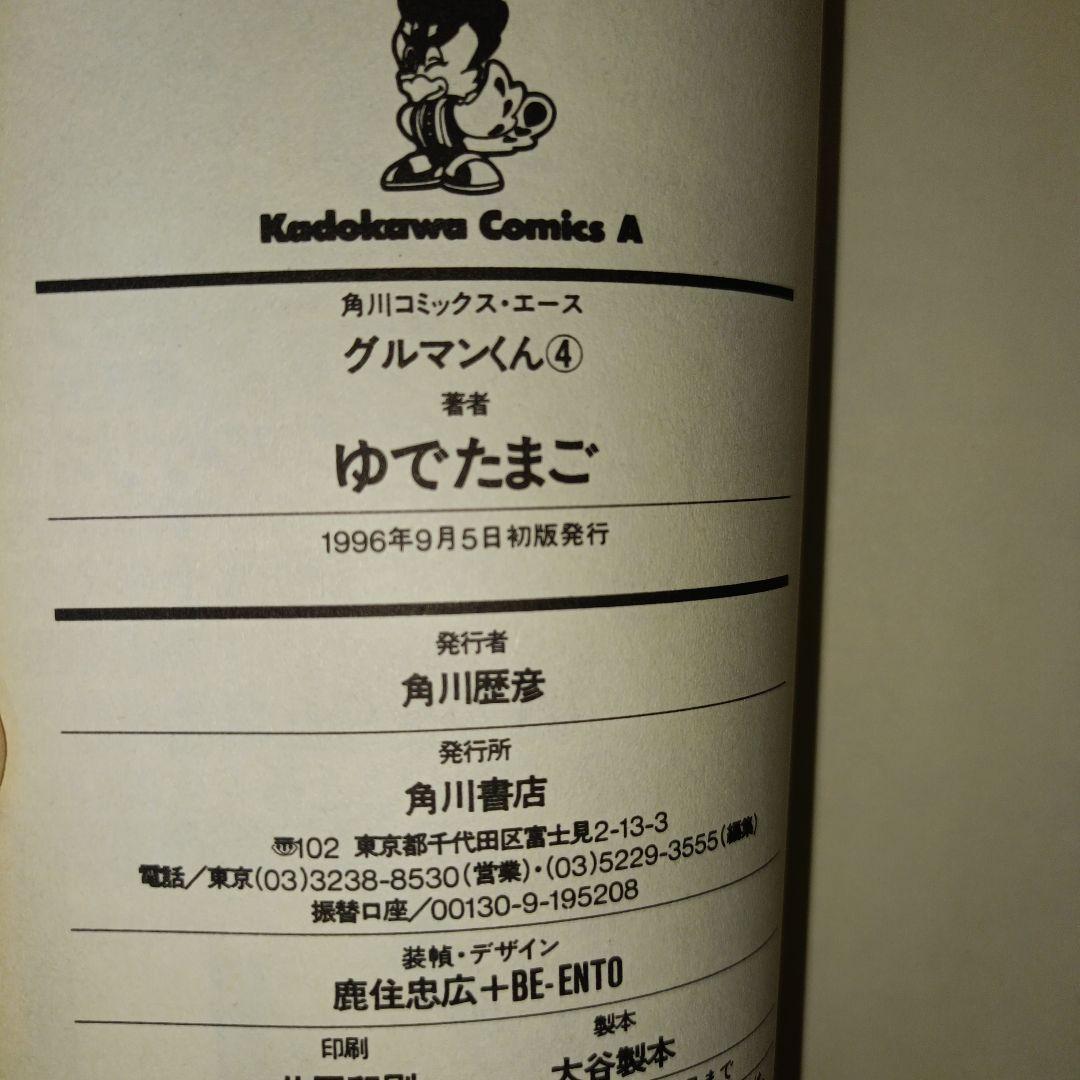 Kadokawa Comics A
角川コミックス・エース
グルマンくん④
著者
ゆでたまご
1996年9月5日初版発行
発行者
角川歴彦
発行所
角川書店
〠102 東京都千代田区富士見2-13-3
電話/東京(03)3238-8530(営業)・(03)5229-3555(編集)
振替口座/00130-9-195208
装幀・デザイン
鹿住忠広+BE-ENTO
印刷
製本
大谷製本